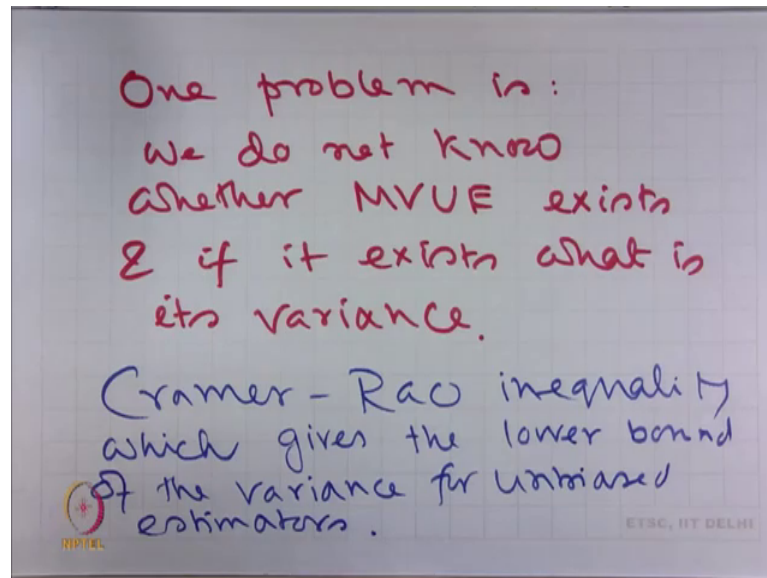 One problem is:
we do not know
whether MVUE exists
& if it exists what is
its variance.
Cramer-Rao inequality
which gives the lower bound
of the variance for unbiased
estimators.
NPTEL
ETSC, IIT DELHI